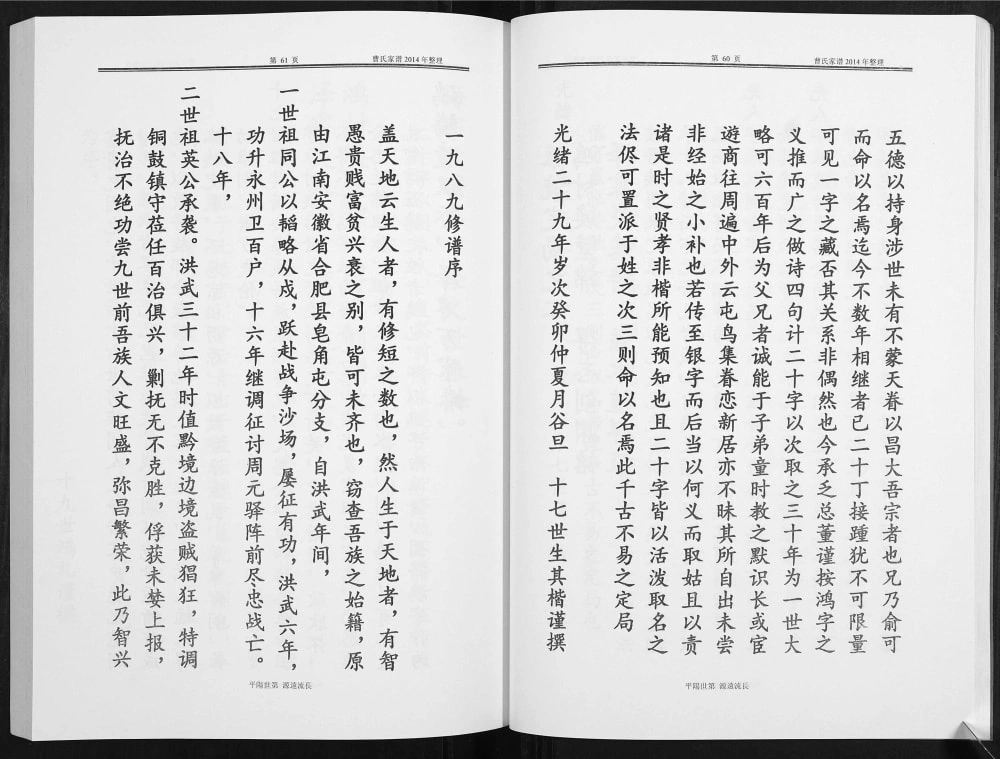 第 60 页
曹氏家谱 2014 年整理
五德以持身涉世未有不蒙天眷以昌大吾宗者也兄乃俞可
而命以名焉迄今不数年相继者已二十丁接踵犹不可限量
可见一字之藏否其关系非偶然也今承乏总董谨按鸿字之
义推而广之做诗四句计二十字以次取之三十年为一世大
略可六百年后为父兄者诚能于子弟童时教之默识长或宦
遊商往周遍中外云屯鸟集眷恋新居亦不昧其所自出未尝
非经始之小补也若传至银字而后当以何义而取姑且以责
诸是时之贤孝非楷所能预知也且二十字皆以活泼取名之
法侭可置派于姓之次三则命以名焉此千古不易之定局
光绪二十九年岁次癸卯仲夏月谷旦 十七世生其楷谨撰
平陽世第 源遠流長
第 61 页
曹氏家谱 2014 年整理
一九八九修谱序
盖天地云生人者，有修短之数也，然人生于天地者，有智
愚贵贱富贫兴衰之别，皆可未齐也，窃查吾族之始籍，原
由江南安徽省合肥县皂角屯分支，自洪武年间，
一世祖同公以韬略从戍，跃赴战争沙场，屡征有功，洪武六年，
功升永州卫百户，十六年继调征讨周元驿阵前尽忠战亡。
十八年，
二世祖英公承袭。洪武三十二年时值黔境边境盗贼猖狂，特调
铜鼓镇守莅任百治俱兴，剿抚无不克胜，俘获未婪上报，
抚治不绝功尝九世前吾族人文旺盛，弥昌繁荣，此乃智兴
平陽世第 源遠流長